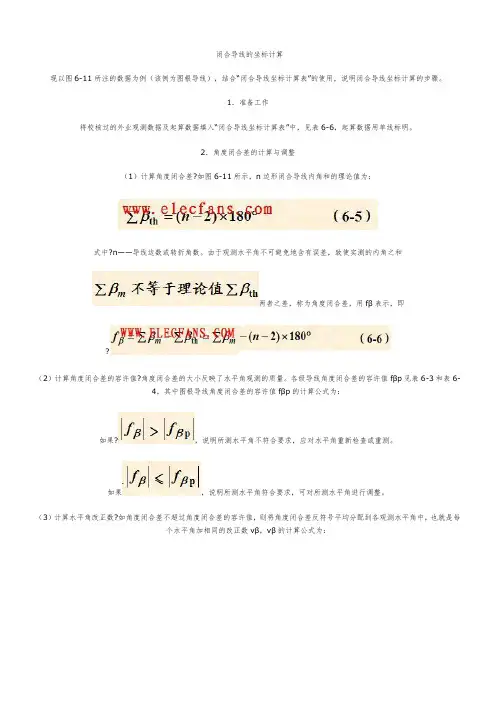 闭合导线的坐标计算
现以图6-11所注的数据为例（该例为图根导线），结合“闭合导线坐标计算表”的使用，说明闭合导线坐标计算的步骤。
1．准备工作
将校核过的外业观测数据及起算数据填入“闭合导线坐标计算表”中，见表6-6，起算数据用单线标明。
2．角度闭合差的计算与调整
（1）计算角度闭合差?如图6-11所示，n边形闭合导线内角和的理论值为：
www.elecfans.com
∑βth=(n-2)×180° （6-5）
式中?n——导线边数或转折角数。由于观测水平角不可避免地含有误差，致使实测的内角之和
∑βm 不等于理论值∑βth 两者之差，称为角度闭合差，用fβ表示，即
WWW.ELECFANS.COM
? fβ=∑βm-∑βth=∑βm-(n-2)×180° （6-6）
（2）计算角度闭合差的容许值?角度闭合差的大小反映了水平角观测的质量。各级导线角度闭合差的容许值fβp见表6-3和表6-
4，其中图根导线角度闭合差的容许值fβp的计算公式为：
如果? |fβ|>|fβp|，说明所测水平角不符合要求，应对水平角重新检查或重测。
如果 |fβ|≤|fβp|，说明所测水平角符合要求，可对所测水平角进行调整。
（3）计算水平角改正数?如角度闭合差不超过角度闭合差的容许值，则将角度闭合差反符号平均分配到各观测水平角中，也就是每
个水平角加相同的改正数vβ，vβ的计算公式为：